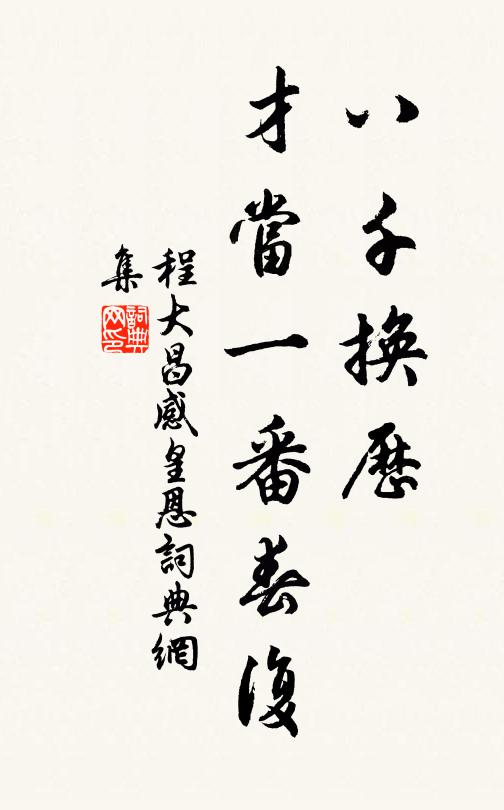 八千換歷
才當一番春復
程大昌感皇恩詞典網
集
詞典
网印